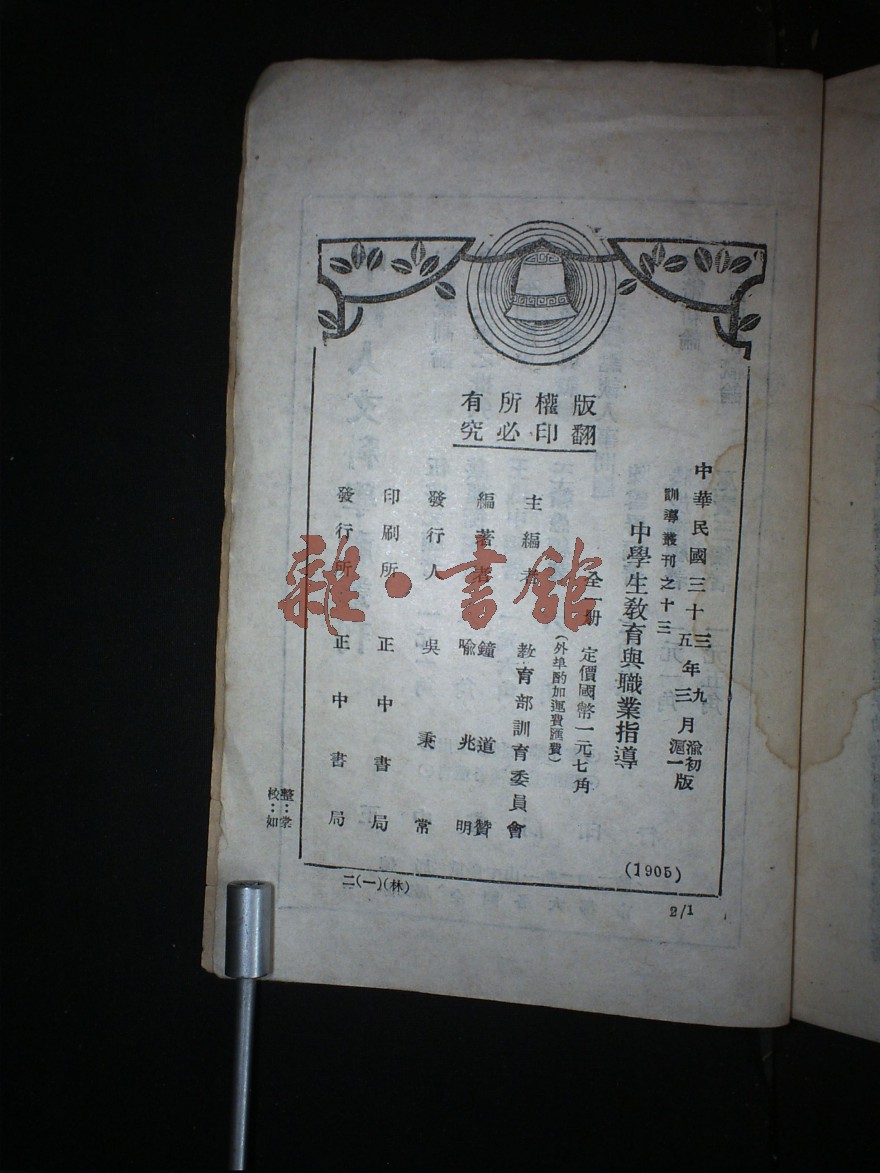 版權所有
翻印必究
中華民國三十三年九月渝初版
五年三月滬一版
訓導叢刊之十三
中學生教育與職業指導
全一册 定價國幣一元七角
(外埠酌加運費匯費)
主編者 教育部訓育委員會
編著者 鐘道贊
喩兆明
發行人 吳秉常
印刷所 正中書局
發行所 正中書局
(1905)
校:如
二(一)(林)
2/1
雜·書館